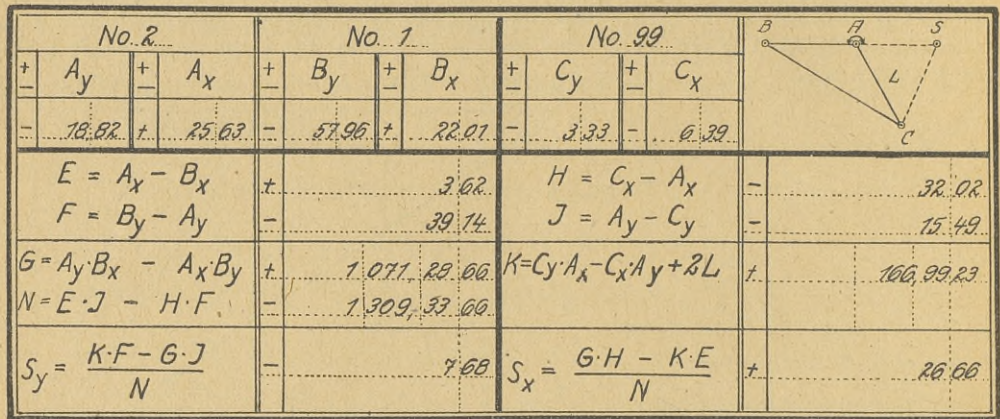 No. 2 No. 1 No. 99 B A S
+ − A_y + − A_x + − B_y + − B_x + − C_y + − C_x L
− 18 82 + 25 63 − 57 96 + 22 01 − 3 33 − 6 39 C
E = A_x − B_x + 3 62 H = C_x − A_x − 32 02
F = B_y − A_y − 39 14 J = A_y − C_y − 15 49
G = A_y·B_x − A_x·B_y + 1 071, 29 66 K = C_y·A_x − C_x·A_y + 2L + 166, 99 23
N = E·J − H·F − 1 309, 33 66
S_y = K·F − G·J / N − 7 68 S_x = G·H − K·E / N + 26 66